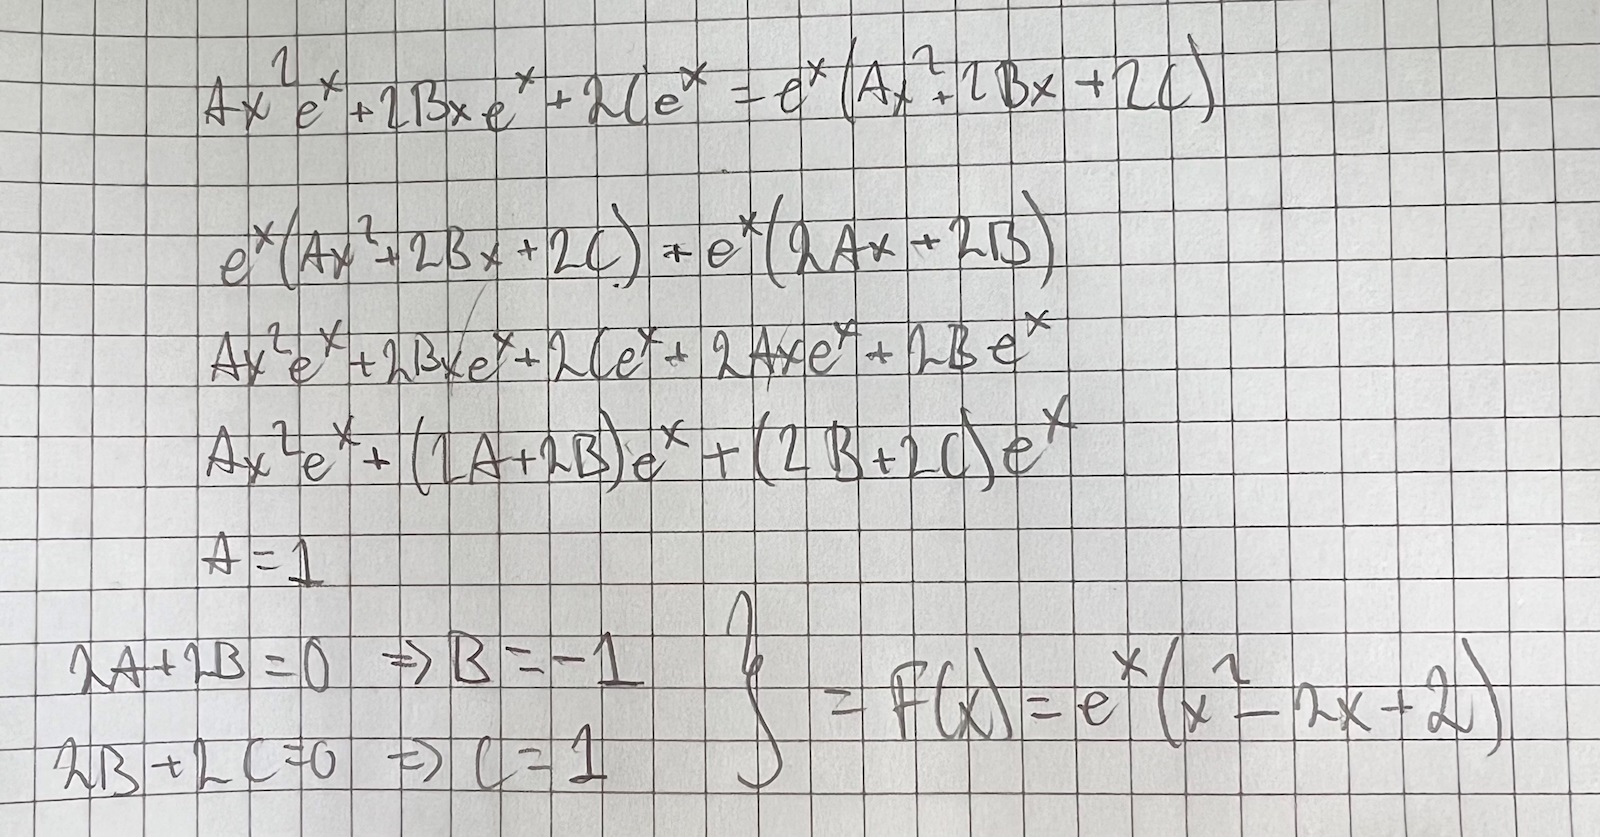 Ax²eˣ + 2Bxeˣ + 2Ceˣ = eˣ(Ax² + 2Bx + 2C)
eˣ(Ax² + 2Bx + 2C) + eˣ(2Ax + 2B)
Ax²eˣ + 2Bxeˣ + 2Ceˣ + 2Axeˣ + 2Beˣ
Ax²eˣ + (2A + 2B)eˣ + (2B + 2C)eˣ
A = 1
2A + 2B = 0 ⇒ B = -1
2B + 2C = 0 ⇒ C = 1
} = F(x) = eˣ(x² - 2x + 2)